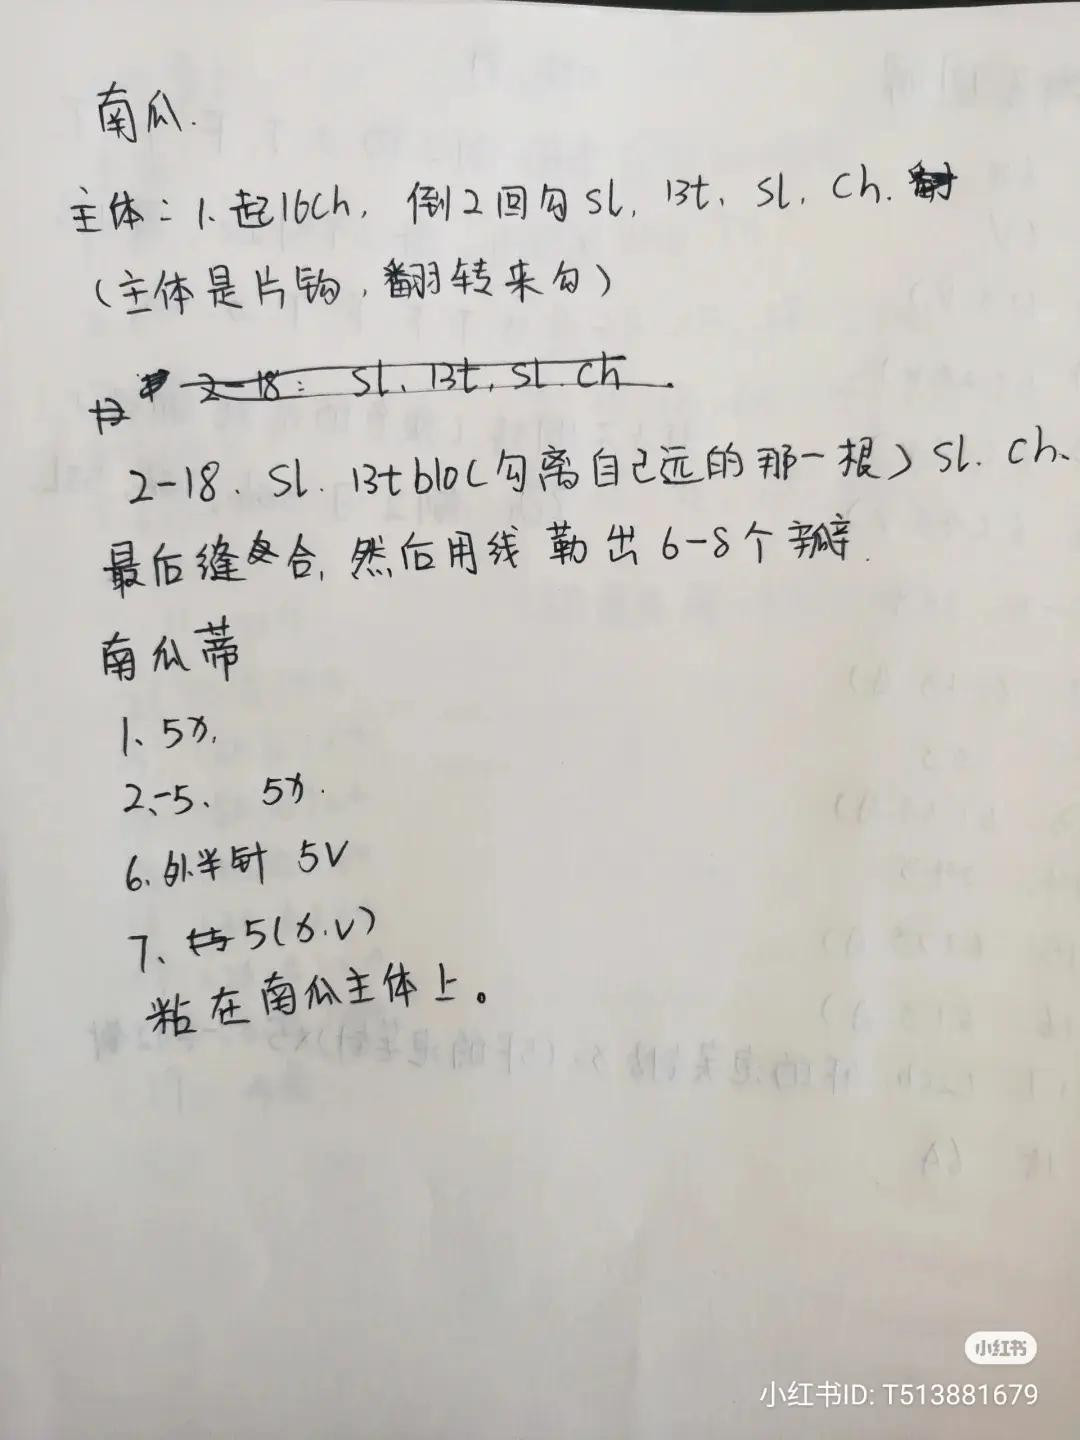 南瓜.
主体：1、起16ch, 倒2回勾sl, 13t, sl, ch.
（主体是片钩, 翻转来勾）
2-18: sl、13t, sl. ch.
2-18、sl. 13t blo（勾离自己远的那一根）sl. ch、
最后缝合, 然后用线勒出6-8个瓣.
南瓜蒂
1、5x,
2、-5、 5x.
6、外半针 5V
7、5(x.v)
粘在南瓜主体上。
小红书
小红书ID: T513881679